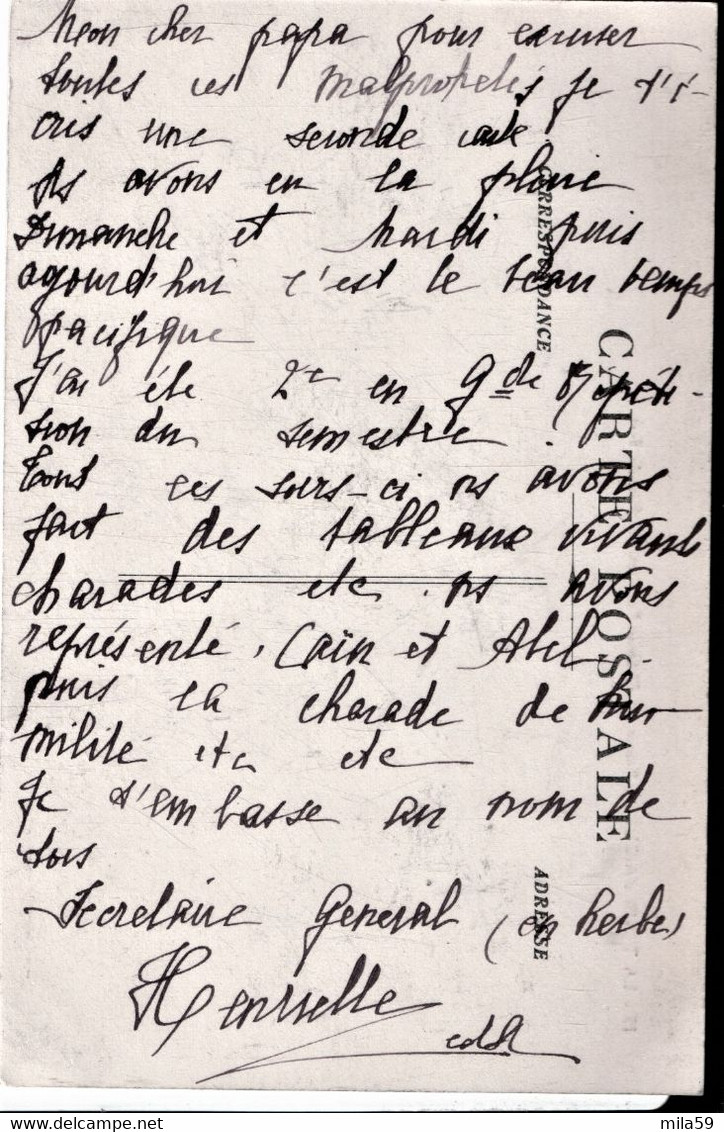 Mon cher papa pour excuser
toutes ces malpropetés je t'é-
cris une seconde carte.
ns avons eu la pluie
Dimanche et Mardi puis
ajourd'hui c'est le beau temps
pacifique
J'ai été 2e en Gde Répéti-
tion du semestre.
Tous ces soirs-ci ns avons
fait des tableaux vivants
charades etc. ns avons
représenté, Caïn et Abel
puis la charade de hu-
milité etc etc
Je t'embasse au nom de
tous
Secretaire General (en herbe)
Henriette
CORRESPONDANCE
CARTE POSTALE
ADRESSE
delcampe.net
mila59